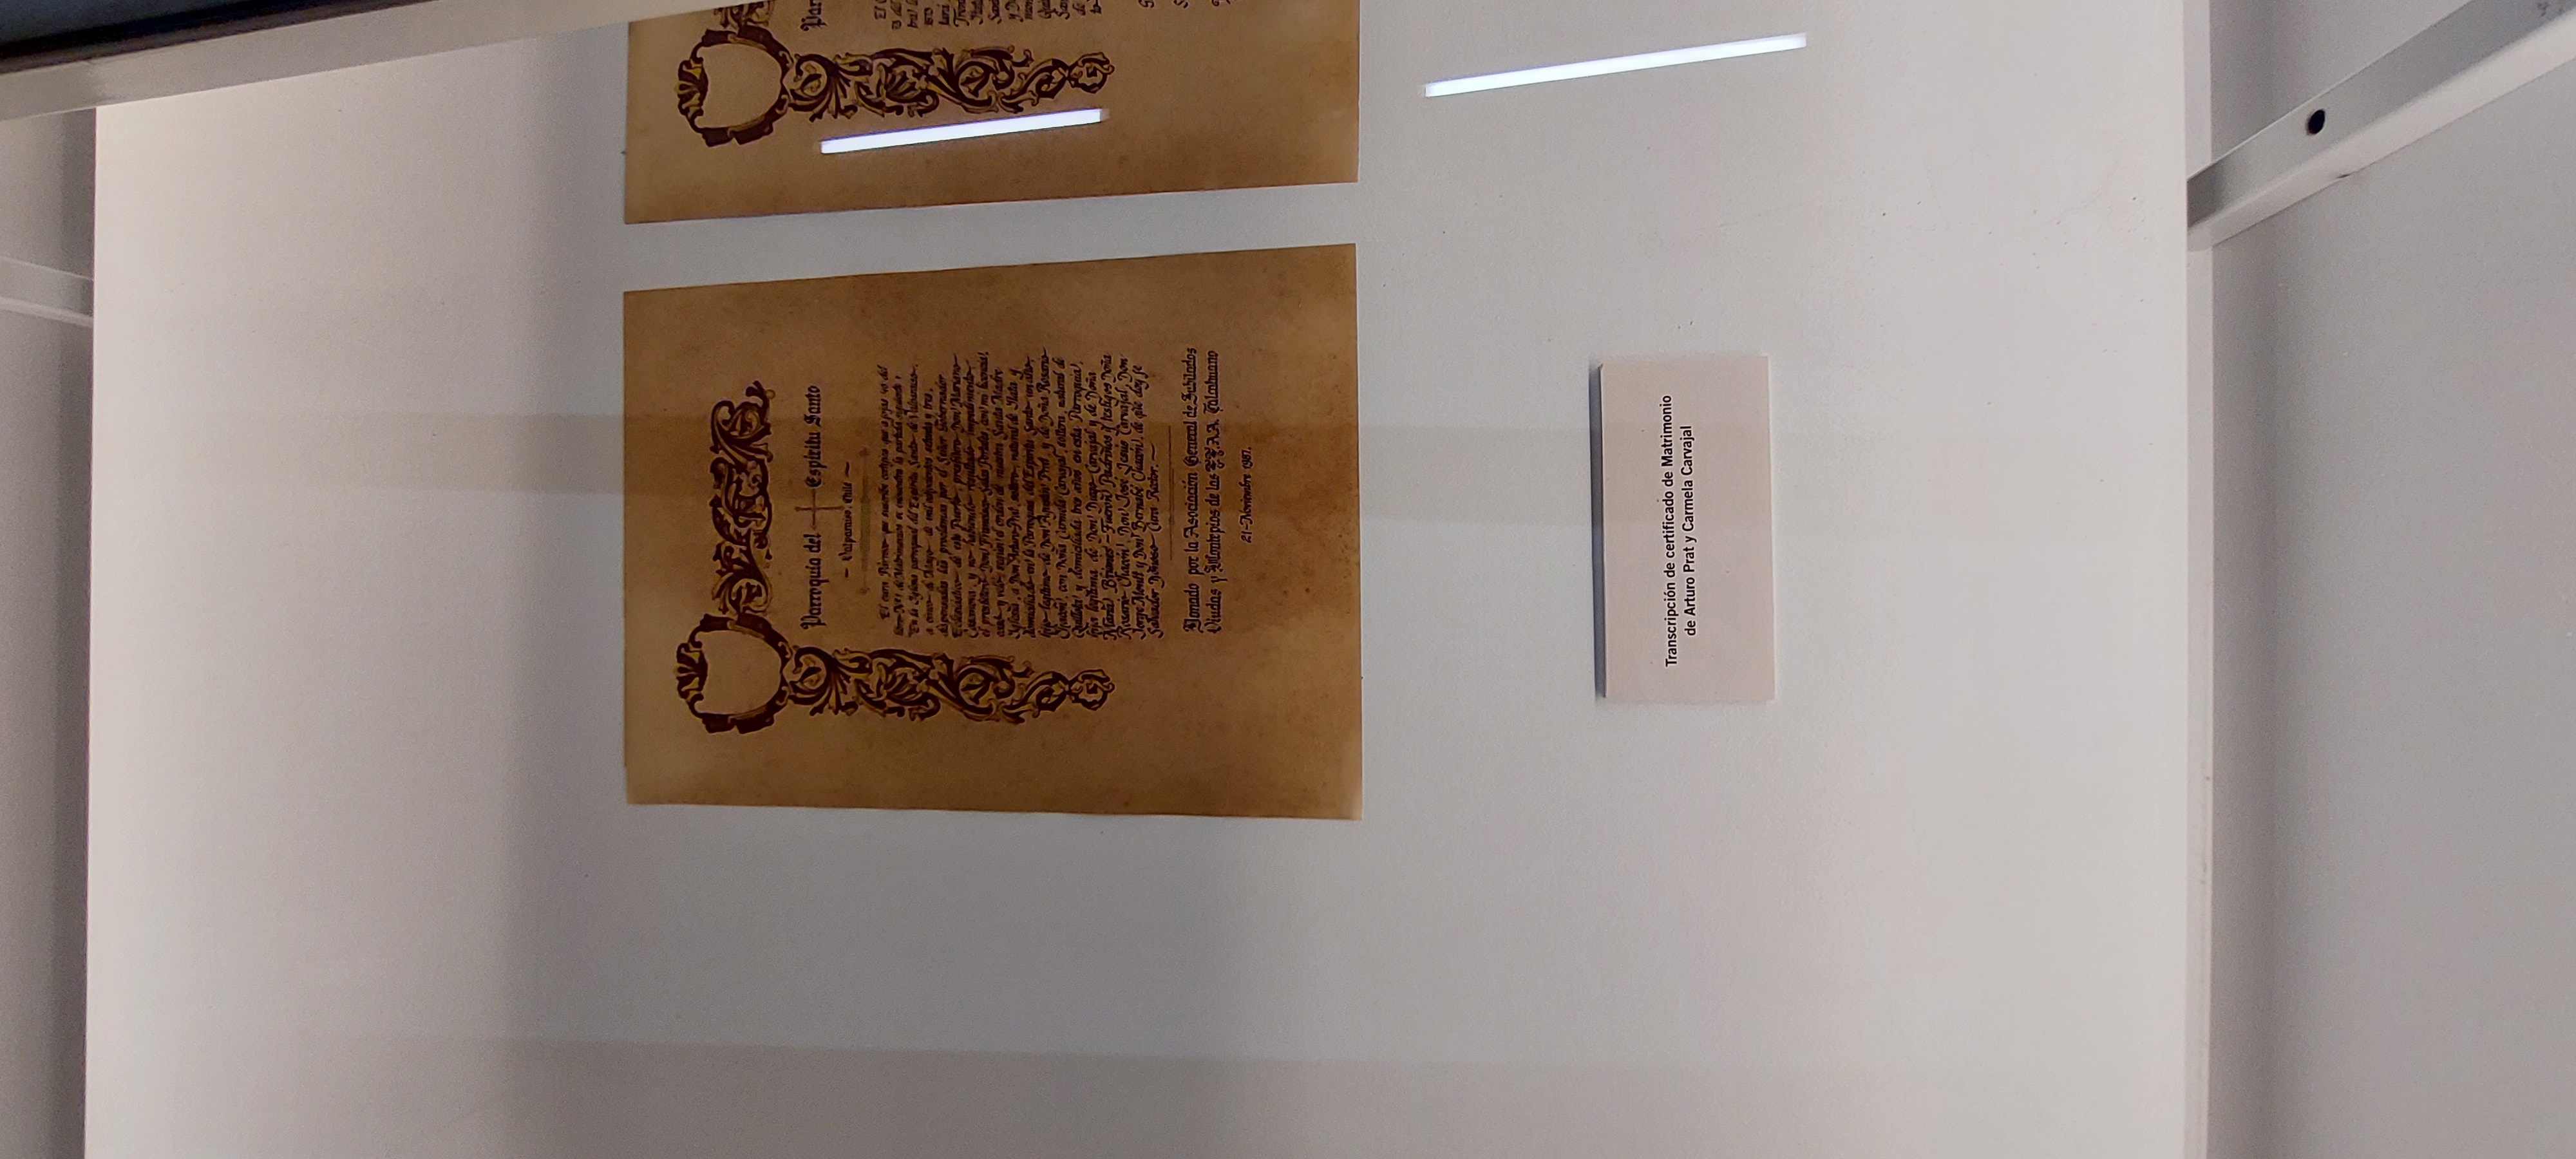 Parroquia del Espíritu Santo
~ Valparaíso. Chile ~
El cura Párroco que suscribe certifica que a fojas 40 del
libro Nº1 de Matrimonios se encuentra la partida siguiente:
"En la Iglesia parroquial del Espíritu Santo de Valparaíso,
a cinco de Mayo de mil ochocientos setenta y tres,
dispensadas las proclamas por el Señor Gobernador
Eclesiástico de este Puerto, presbítero Don Mariano
Casanova, y no habiendo resultado impedimento,
el presbítero Don Francisco Salas Portales, con mi licencia,
casó y veló según el orden de nuestra Santa Madre
Iglesia, a Don Arturo Prat, soltero, natural de Itata y
domiciliado en la Parroquia del Espíritu Santo un año,
hijo legítimo de Don Agustín Prat, y de Doña Rosario
Chacón, con Doña Carmela Carvajal, soltera, natural de
Quillota y domiciliada tres años en esta Parroquia,
hija legítima de Don Diego Carvajal y de Doña
María Briones - Fueron Padrinos y testigos Doña
Rosario Chacón, Don José Jesús Carvajal, Don
Jorge Montt y Don Bernabé Chacón, de que doy fe
Salvador Donoso - Cura Rector. ~
Donado por la Asociación General de Jubilados
Viudas y Montepíos de las FF.AA. Talcahuano
21-Noviembre 1987.
Par
El
Transcripción de certificado de Matrimonio
de Arturo Prat y Carmela Carvajal